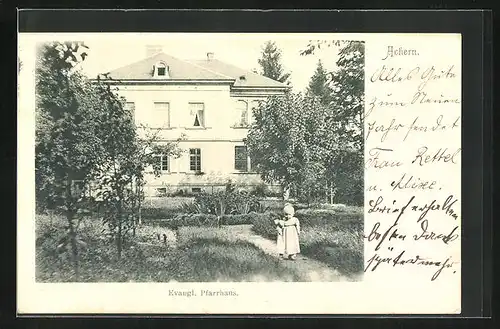 Achern.
Alles Gute
zum Neuen
Jahr sendet
Frau Rettel
u.
Brief erhalten
besten Dank
später mehr.
Evangl. Pfarrhaus.